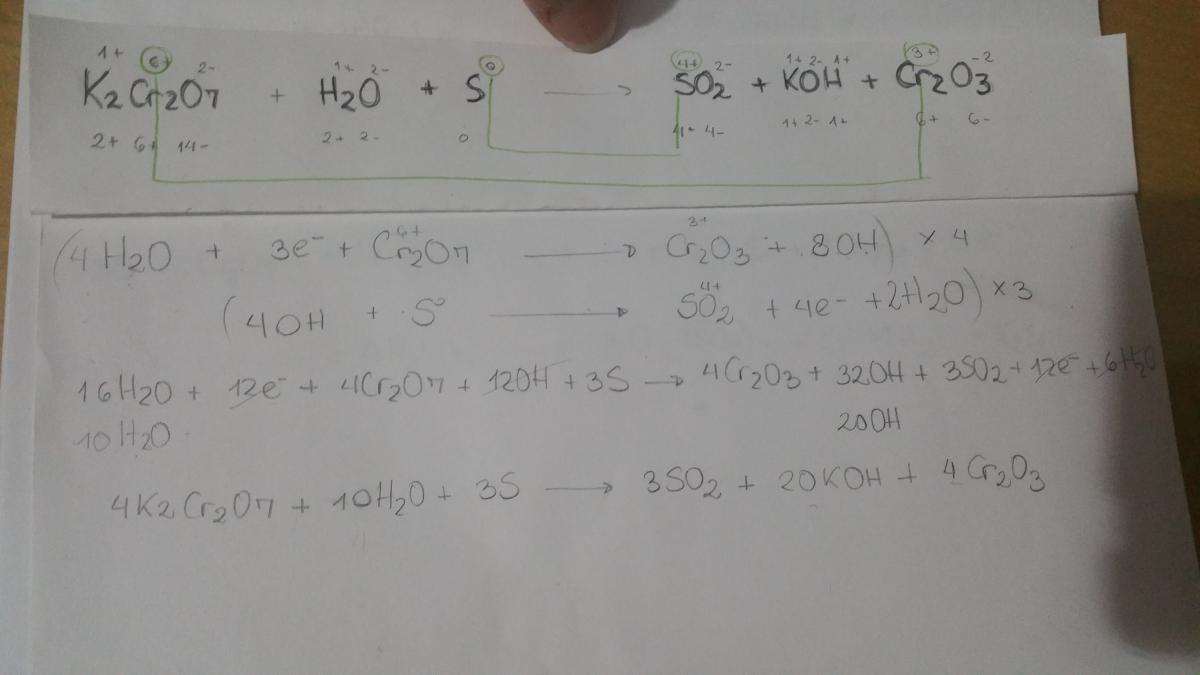 1+ 6+ 2- 1+ 2- 0 4+ 2- 1+ 2- 1+ 3+ -2
K2Cr2O7 + H2O + S → SO2 + KOH + Cr2O3
2+ 6+ 14- 2+ 2- 0 4+ 4- 1+ 2- 1+ 6+ 6-
6+ 3+
(4H2O + 3e- + Cr2O7 → Cr2O3 + 8OH) × 4
0 4+
(4OH + S → SO2 + 4e- + 2H2O) × 3
16H2O + 12e- + 4Cr2O7 + 12OH + 3S → 4Cr2O3 + 32OH + 3SO2 + 12e- + 6H2O
10H2O 20OH
4K2Cr2O7 + 10H2O + 3S → 3SO2 + 20KOH + 4Cr2O3